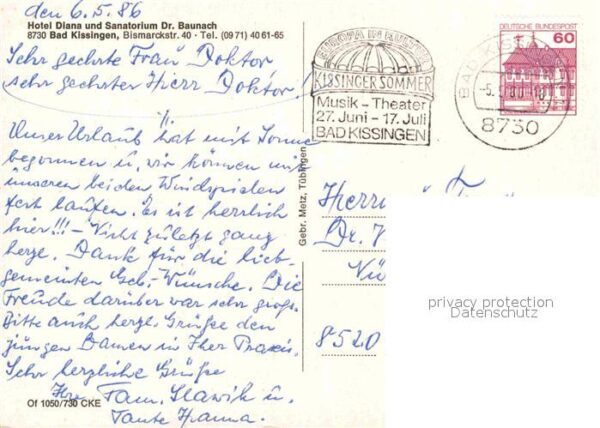 den 6.5.86
Hotel Diana und Sanatorium Dr. Baunach
8730 Bad Kissingen, Bismarckstr. 40 · Tel. (09 71) 40 61-65
Sehr geehrte Frau Doktor
sehr geehrter Herr Doktor!
Unser Urlaub hat mit Sonne
begonnen u. wir können mit
unseren beiden Windspielen
fest laufen. Es ist herrlich
hier!!! – Nicht zuletzt ganz
herzl. Dank für die lieb-
gemeinten Geb. Wünsche. Die
Freude darüber war sehr groß.
Bitte auch herzl. Grüße den
jungen Damen in Ihrer Praxis.
Sehr herzliche Grüße
Ihre Fam. Slawik u.
Tante Hanna.
Of 1050/730 CKE
Gebr. Metz, Tübingen
KISSINGER SOMMER
Musik – Theater
27. Juni – 17. Juli
BAD KISSINGEN
DEUTSCHE BUNDESPOST
60
BAD KISSI
8730
Herrn
Dr.
8520
privacy protection
Datenschutz